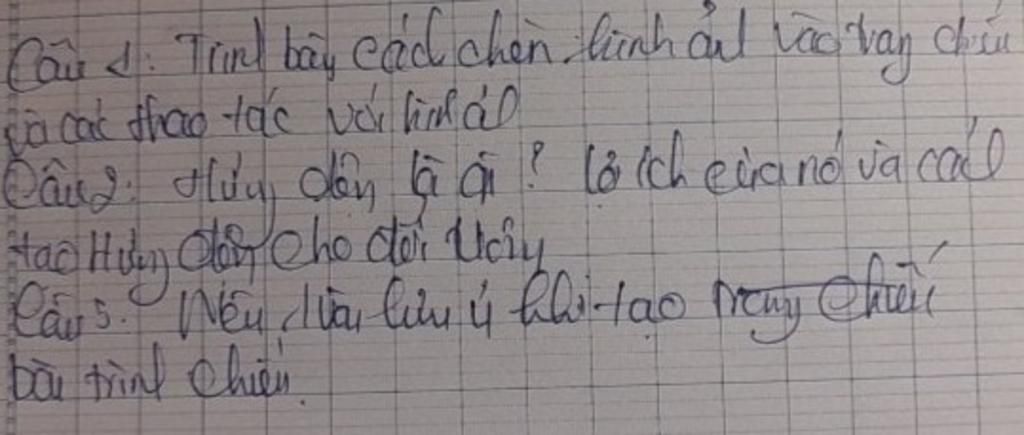 Câu 1: Trình bày cách chèn hình ảnh vào trang chiếu
và các thao tác với hình ảnh
Câu 2: Hiệu động là gì? lợi ích của nó và các
tạo Hiệu động cho đối tượng
Câu 3: Nêu lưu ý khi tạo
bài trình chiếu.